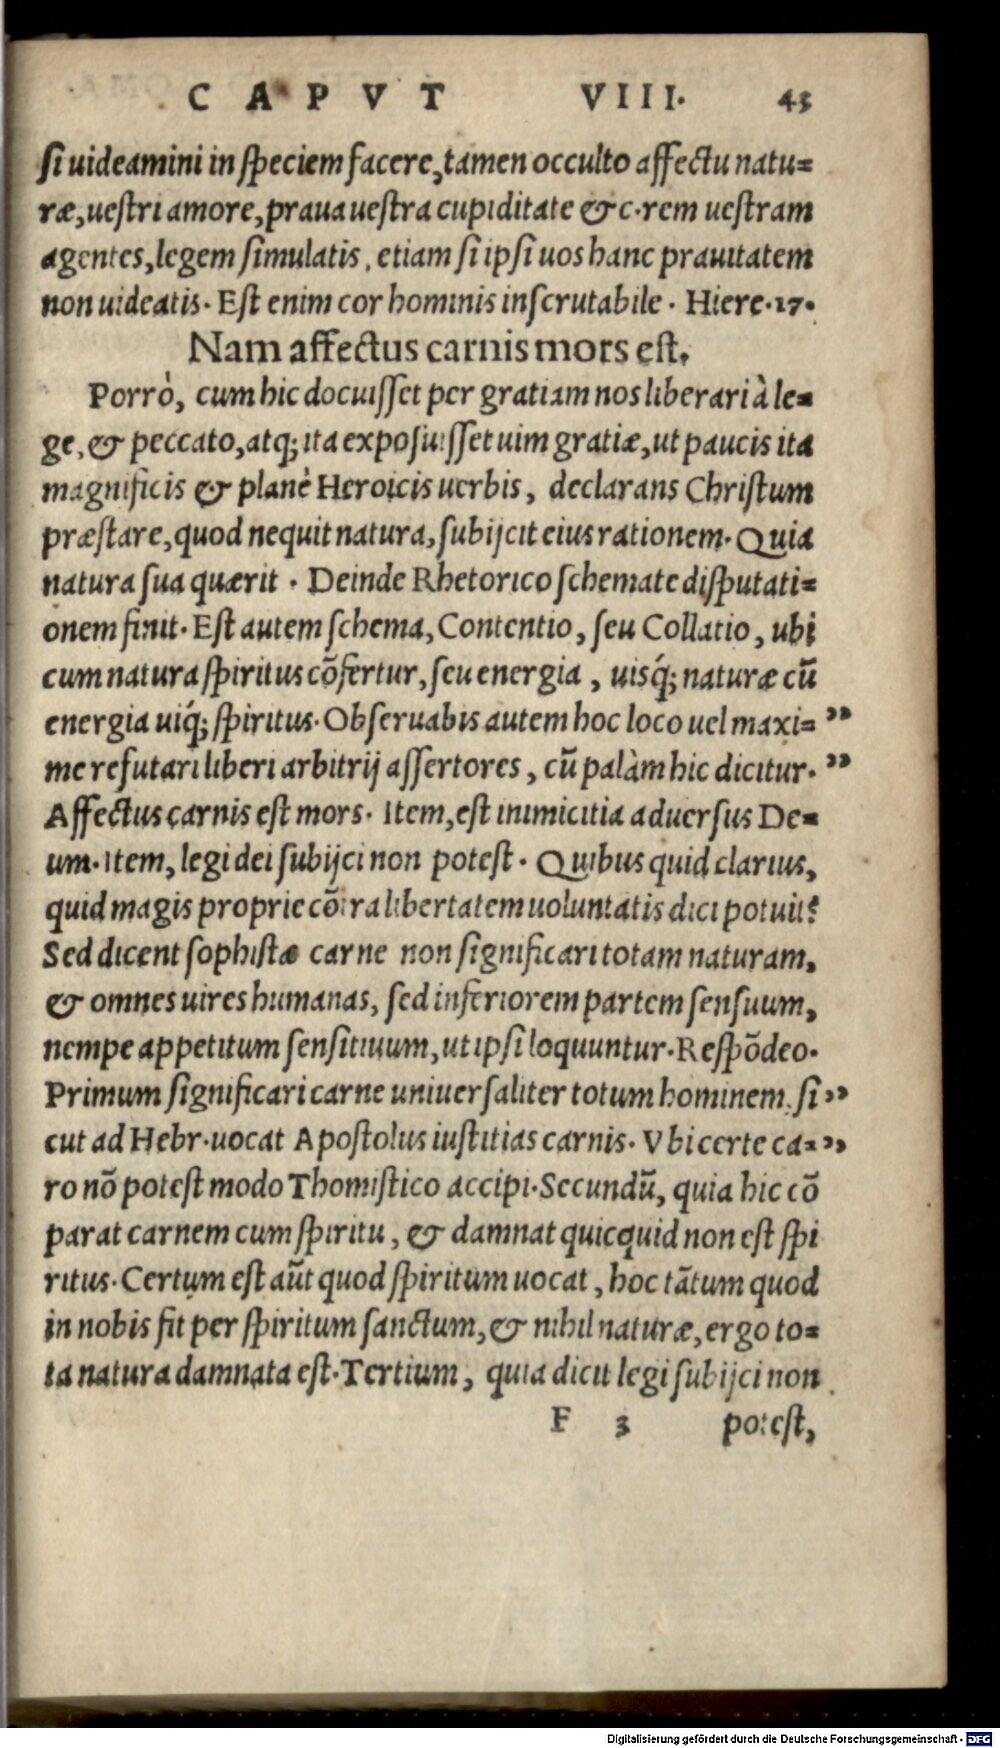 CAPVT VIII. 43
si uideamini in speciem facere, tamen occulto affectu natu=
ræ, uestri amore, praua uestra cupiditate &c. rem uestram
agentes, legem simulatis, etiam si ipsi uos hanc prauitatem
non uideatis. Est enim cor hominis inscrutabile. Hiere. 17.
Nam affectus carnis mors est.
Porrò, cum hic docuisset per gratiam nos liberari à le=
ge, & peccato, atq; ita exposuisset uim gratiæ, ut paucis ita
magnificis & planè Heroicis uerbis, declarans Christum
præstare, quod nequit natura, subijcit eius rationem. Quia
natura sua quærit. Deinde Rhetorico schemate disputati=
onem finit. Est autem schema, Contentio, seu Collatio, ubi
cum natura spiritus cõfertur, seu energia, uisq́; naturæ cũ
energia uiq́; spiritus. Obseruabis autem hoc loco uel maxi= ”
me refutari liberi arbitrij assertores, cũ palàm hic dicitur. ”
Affectus carnis est mors. Item, est inimicitia aduersus De=
um. Item, legi dei subijci non potest. Quibus quid clarius,
quid magis proprie cõtra libertatem uoluntatis dici potuit?
Sed dicent sophistæ carne non significari totam naturam,
& omnes uires humanas, sed inferiorem partem sensuum,
nempe appetitum sensitiuum, ut ipsi loquuntur. Respõdeo.
Primum significari carne uniuersaliter totum hominem, si ”
cut ad Hebr. uocat Apostolus iustitias carnis. Vbi certe ca= ”
ro nõ potest modo Thomistico accipi. Secundũ, quia hic cõ
parat carnem cum spiritu, & damnat quicquid non est spi
ritus. Certum est aũt quod spiritum uocat, hoc tãtum quod
in nobis fit per spiritum sanctum, & nihil naturæ, ergo to=
ta natura damnata est. Tertium, quia dicit legi subijci non
F 3 potest,
Digitalisierung gefördert durch die Deutsche Forschungsgemeinschaft - DFG